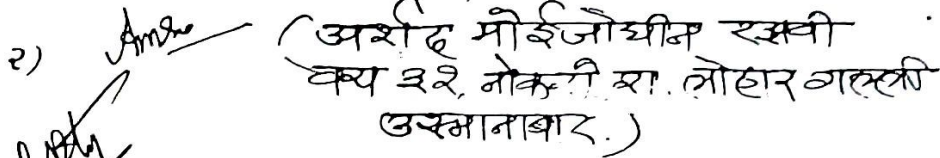 २) (अर्शद मोईजोद्यीन रझवी
वय ३२, नोकरी रा. लोहार गल्ली
उस्मानाबाद.)